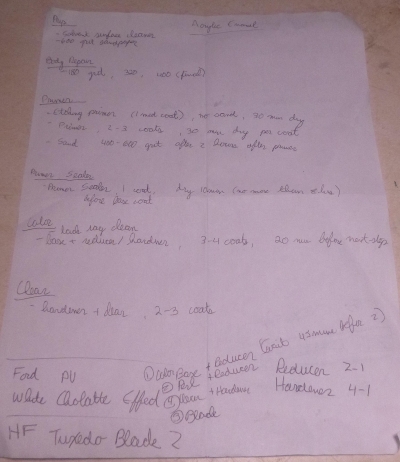 Prep
Acrylic Enamel
- Solvent surface cleaner
- 600 grit sandpaper
Body Repair
- 180 grit, 320, 400 (final)
Primer
- Etching primer (1 med coat), no sand, 30 min dry
- Primer, 2-3 coats, 30 min dry per coat
- Sand 400-600 grit after 2 hours after primer
Primer Sealer
- Primer Sealer 1 coat, dry 15min (no more than
before base coat
Color
tack rag clean
- base + reducer/hardner, 3-4 coats, 20 min before next step
Clear
- hardener + clear, 2-3 coats
Ford PU
White Cholatte Effed
① Color Base + Reducer (wait 45 minute before 2)
② Perl + Reducer
③ Clear + Hardene
③ Blade
Reducer 2-1
Hardener 4-1
HF Tuxedo Blade 2